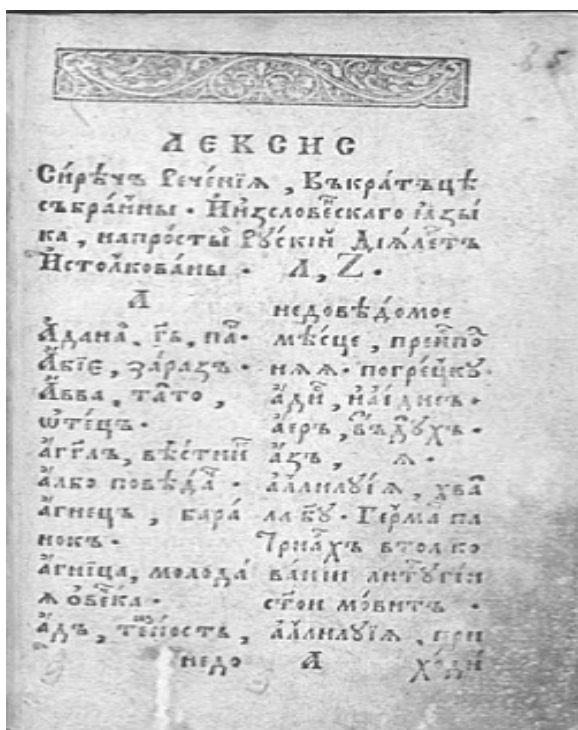 85
ЛЕКСИС
Си́рѣчъ Рече́нїѧ , Въкра́тъцѣ
събра́нны · И҆ꙁсловенскаго ꙗ҆ꙁы́
ка , напро́сты Ру́скїй Дїѧ́лектъ
И҆столкова́ны · Л , Z ·
А
Абїе , за́раꙁъ ·
Авва , та́то ,
ѡ҆те́цъ ·
а҆гг҃лъ , вѣ́стни
а҆лбо повѣ́да ·
а҆гнецъ , бара́
нокъ ·
а҆гни́ца , молода́
ѧ ѻ҆ве́чка ·
а҆дъ , те́мность ,
недо
недовѣ́домое
мѣ́сце , преиспо
нѧѧ · погре́цку
а҆дй , наидисъ ·
а҆еръ , въꙁдухъ ·
а҆ꙁъ , ѧ ·
а҆ллилуїѧ , хва
ла бг҃у · Ге́рман па
трїа́рхъ втолко
ва́нїи литургїи
ст҃ои мо́витъ ·
а҆ллилуїѧ , при
А хо́ди